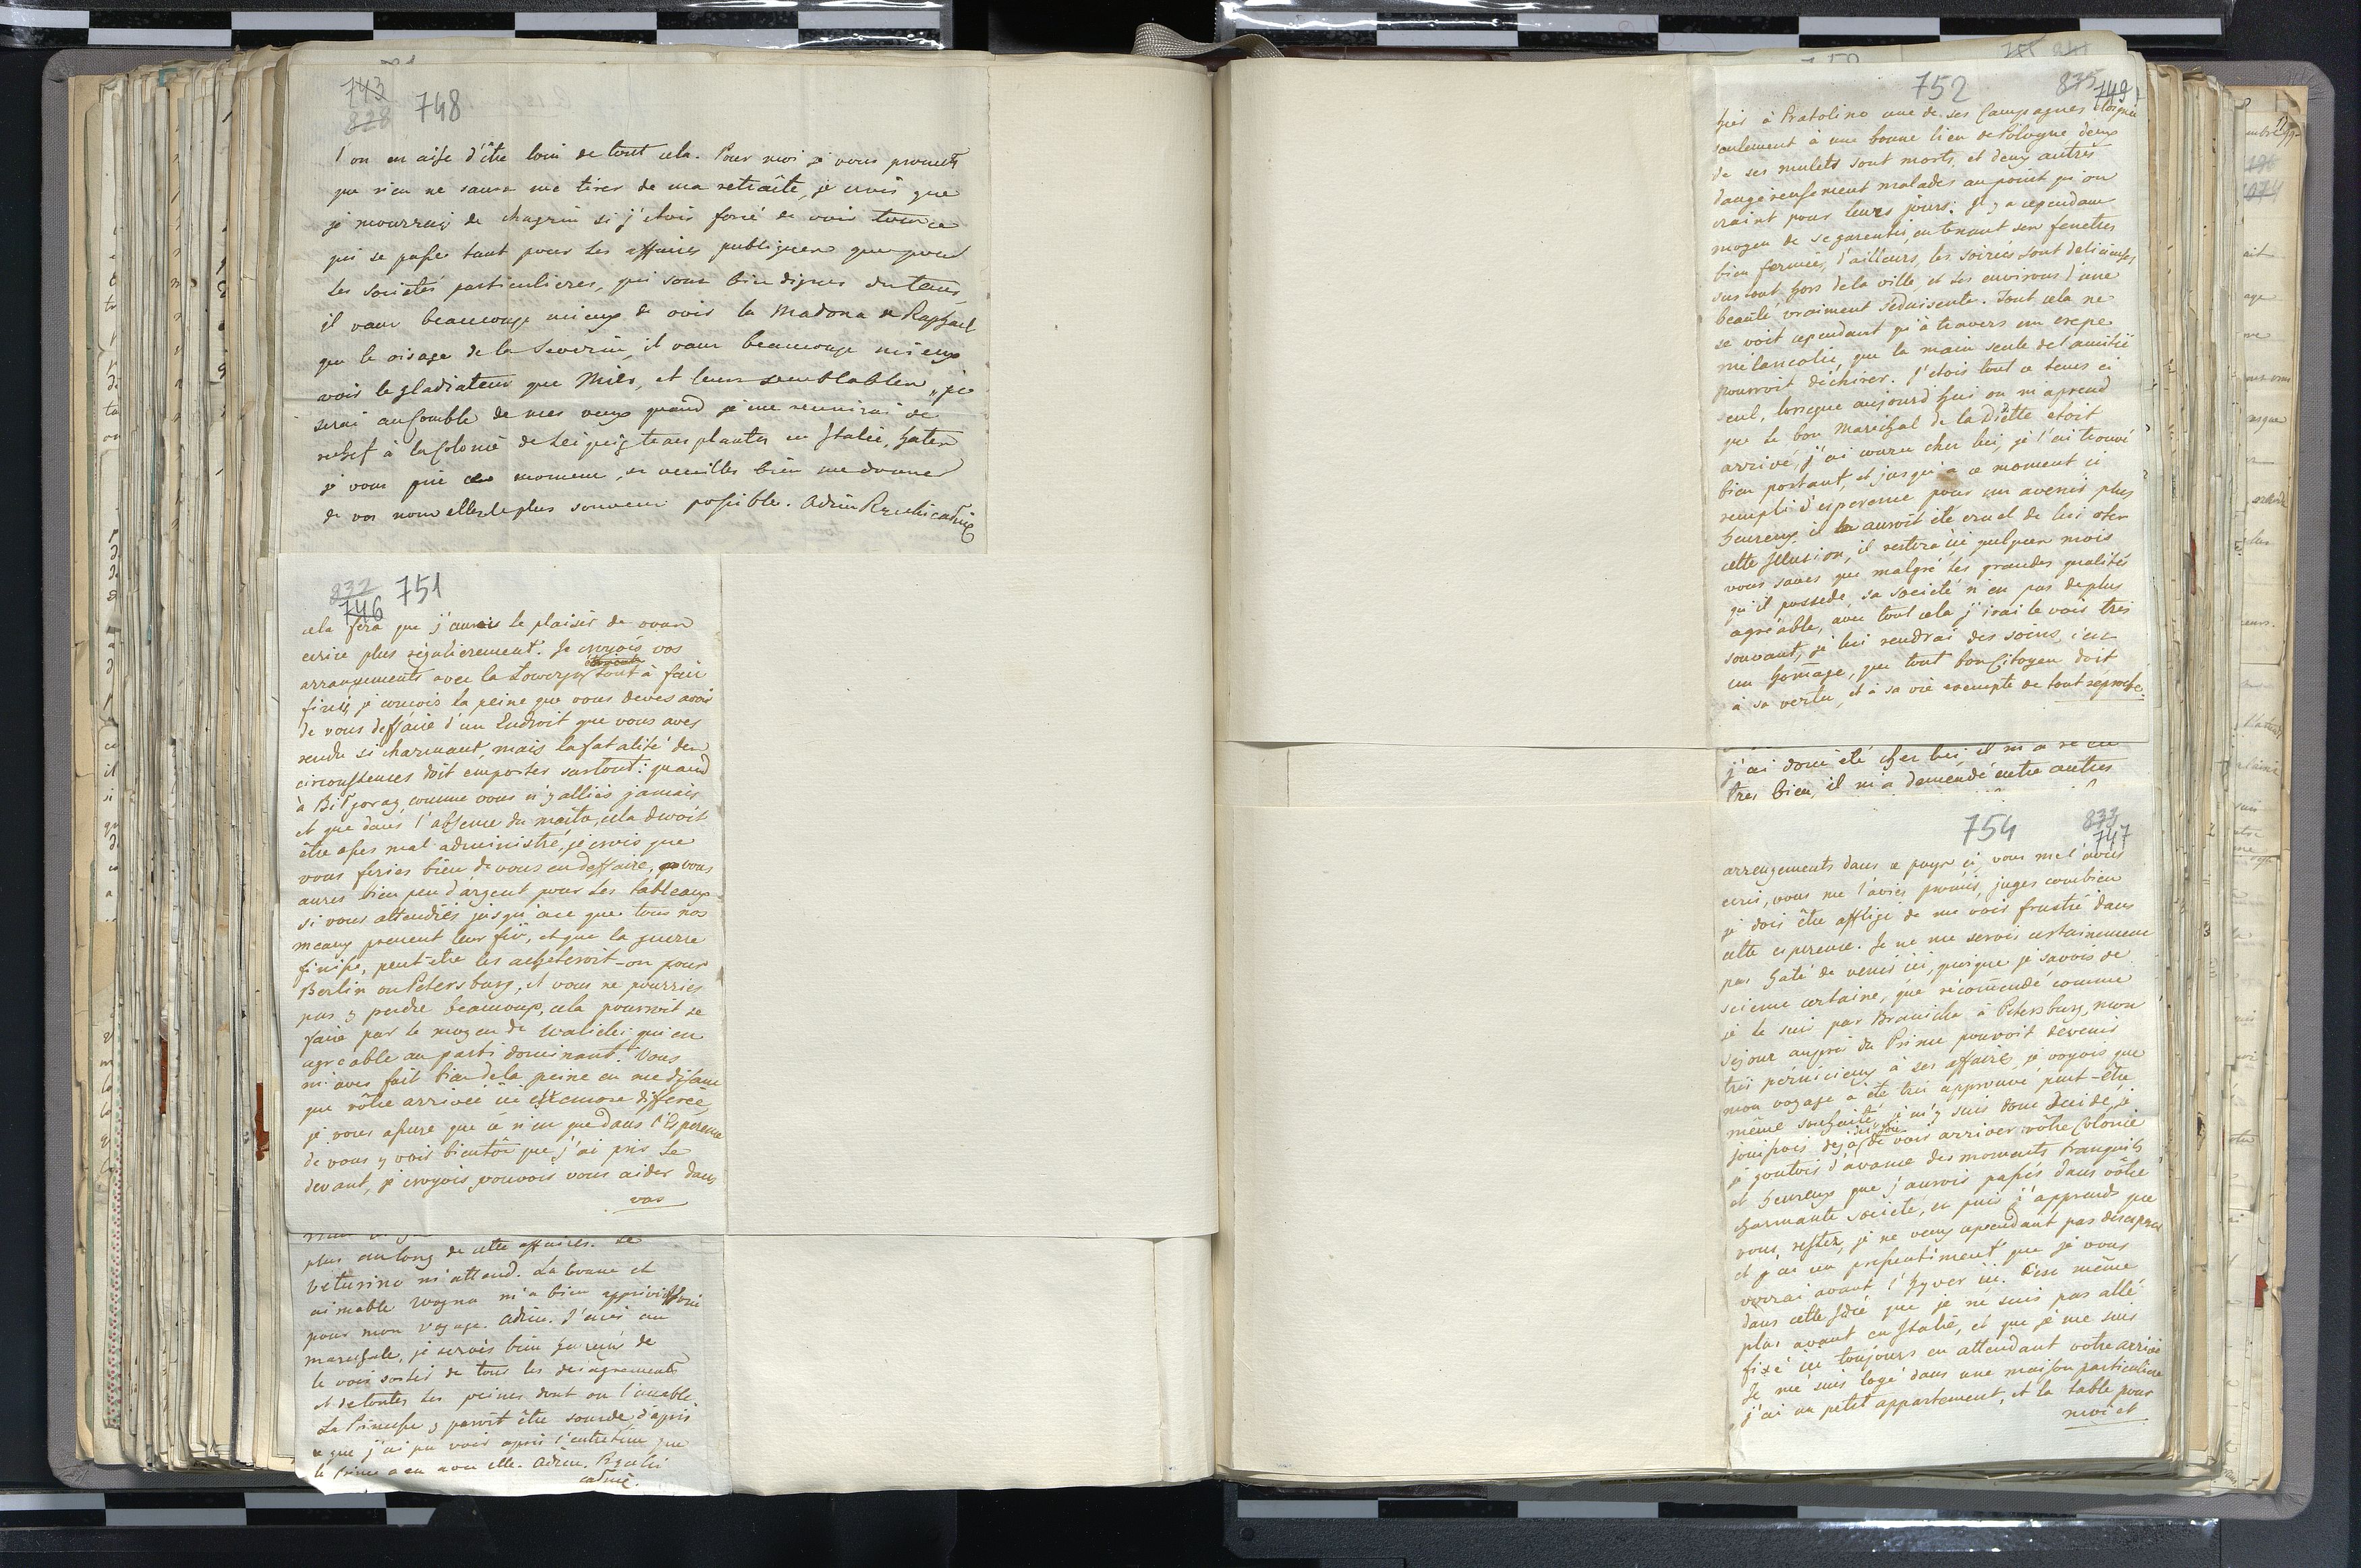 743
828 748
l'on en aise d'être loin de tout cela. Pour moi je vous promets
que rien ne saura me tirer de ma retraite, je crois que
je mourrais de chagrin si j'etois forcé de voir tout ce
qui se passe tant pour les affaires publiques que pour
les societés particulieres, qui sont bien dignes du tems,
il vaut beaucoup mieux de voir la Madona de Raphael
que le visage de la Severin, il vaut beaucoup mieux
voir le gladiateur que Miler, et leurs semblables, je
serai au comble de mes veux quand je me reunirai de
rechef à la Colonie de Leipzig transplantée en Italie, hater
je vous prie ce moment, et veuilles bien me donner
de vos nouvelles le plus souvent possible. Adieu
832
746 751
cela fera que j'aurais le plaisir de vous
ecrire plus régulierement. Je croyois vos
arrangements avec la tout à fait
finis, je conçois la peine que vous deves avoir
de vous deffaire d'un Endroit que vous aves
rendu si charmant mais la fatalité des
circonstences doit emporter surtout: quand
à Biłgoray, comme vous n'y alliés jamais
et que dans l'absence du maitre, cela devoit
être asses mal administré, je crois que
vous feries bien de vous en deffaire, vous
aures bien peu d'argent pour les tableaux
si vous attendiés jusqu'à ce que tous nos
meaux prenent leur fin, et que la guerre
finisse, peut-être les acheteroit-on pour
Berlin ou Petersburg, et vous ne pourries
pas y perdre beaucoup, cela pourroit se
faire par le moyen de Walicki qui est
agreable au parti dominant. Vous
m'aves fait bien de la peine en me disant
que vôtre arrivée ici est encore differée,
je vous assure que ce n'est que dans l'Espérence
de vous y voir bientôt que j'ai pris le
devant, je croyois pouvoir vous aider dans
vos
plus au long de cette affaires. Le
Veturino m'attend. La bonne et
aimable Woyna m'a bien
pour mon voyage. Adieu. J'ecris au
marechale, je serois bien de
le voir sortir de tous les desagrements
et de toutes les peines dont on l'accable
La Princesse y paroit être sourde, d'après
ce que j'ai pu voir après l'entretien que
le Prince a eu avec elle. Adieu.
752 835
749
hier à Pratolino une de ses Campagnes eloigné
seulement à une bonne lieu de Pologne deux
de ses mulets sont morts, et deux autres
dangereusement malades au point qu'on
craint pour leurs jours; Il y a cependant
moyen de se garentir, en tenant ses fenetres
bien fermées, d'ailleurs, les soirées sont delicieuses,
surtout hors de la ville, et les environs d'une
beauté vraiment séduisente. Tout cela ne
se voit cependant qu'à travers un crepe
mélancolie, que la main seule de l'amitié
pourroit déchirer. J'etois tout ce tems ci
seul, lorsque aujourd'hui on m'aprend
que le bon Marechal de la Diètte etoit
arrivé, j'ai couru cher lui, je l'ai trouvé
bien portant, et jusqu'à ce moment ci
rempli d'esperence pour un avenir plus
heureux, il auroit été cruel de lui oter
cette Illusion, il restera ici quelques mois
vous saves que malgré les grandes qualités
qu'il possede, sa societé n'en pas de plus
agréable, avec tout cela j'irai le voir très
souvant, je lui rendrai des soins, c'est
un homage, que tout bon Citoyen doit
à sa vertu, et à sa vie exempte de tout reproche.
j'ai donc été cher lui, il m'a reçu
tres bien, il m'a demendé entre autres
754 833
747
arrengements dans ce pays ci, vous me l'avés
ecris, vous me l'aviés promis, juges combien
je dois être affligé de me voir frustré dans
cette esperence. Je ne me serois certainement
pas haté de venir ici, quoique je savois de
science certaine, que récomendé comme
je le suis par Branicka à Petersburg, mon
sejour auprès du Prince pouvoit devenir
très pérnicieux à ses affaires, je voyois que
mon voyage a été très approuvé peut-être
même souhaité, je m'y suis donc decidé, je
jouissois dejà de voir arriver vôtre Colonie
je goutois d'avance des moments tranquils
et heureux que j'aurois passés dans vôtre
charmante societé, et puis j'apprends que
vous restez, je ne veux cependant pas desesperer
et j'ai un pressentiment que je vous
verrai avant l'hyver ici. C'est même
dans cette Idée que je ne suis pas allé
plus avant en Italie, et que je me suis
fixé ici toujours en attendant votre arrivée
Je me suis logé dans une maison particuliere
j'ai un petit appartement, et la table pour
moi et